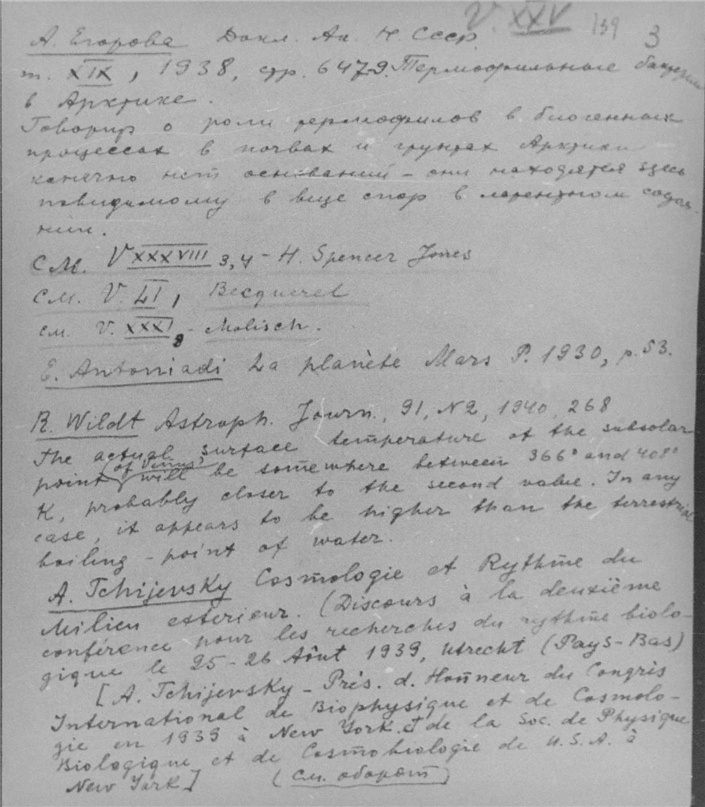 V. XXV 139 3
А. Егорова Докл. Ак. Н. СССР.
т. XIX, 1938, стр. 647-9. Термофильные бактерии
в Арктике.
Говорить о роли термофилов в биогенных
процессах в почвах и грунтах Арктики
конечно нет оснований – они находятся здесь
повидимому в виде спор в латентном состоя-
нии.
См. V XXXVIII 3,4 – H. Spencer Jones
См. V. LI, Becquerel
см. V. XXXI, – Molisch.
E. Antoniadi La planète Mars P. 1930, p. 53.
R. Wildt Astroph. Journ., 91, N2, 1940, 268
The actual surface temperature of the subsolar
point (of Venus) will be somewhere between 366° and 408°
K, probably closer to the second value. In any
case, it appears to be higher than the terrestrial
boiling-point of water.
A. Tchijevsky Cosmologie et Rythme du
Milieu extérieur. (Discours à la deuxième
conférence pour les recherches du rythme biolo-
gique le 25-26 Août 1939, Utrecht (Pays-Bas)
[A. Tchijevsky – Prés. d. Honneur du Congrès
International de Biophysique et de Cosmolo-
gie en 1939 à New York et de la Soc. de Physique
Biologique et de Cosmobiologie de U.S.A. à
New York] (См. оборот)